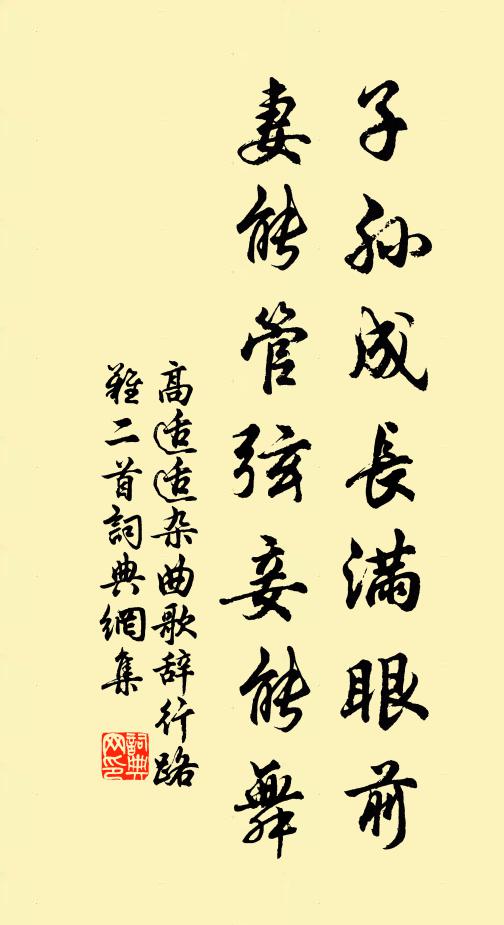 子孙成長満眼前
妻能管弦妾能舞
高适适杂曲歌辞行路
難二首詞典網集
詞典
网印